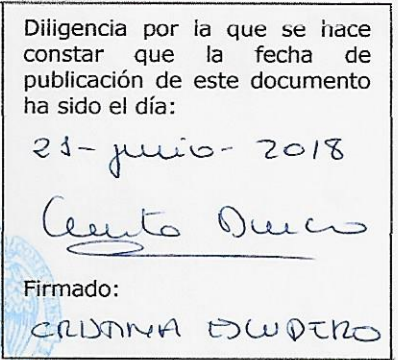 Diligencia por la que se hace
constar que la fecha de
publicación de este documento
ha sido el día:
21-junio-2018
Firmado:
CRISTINA ESCUDERO